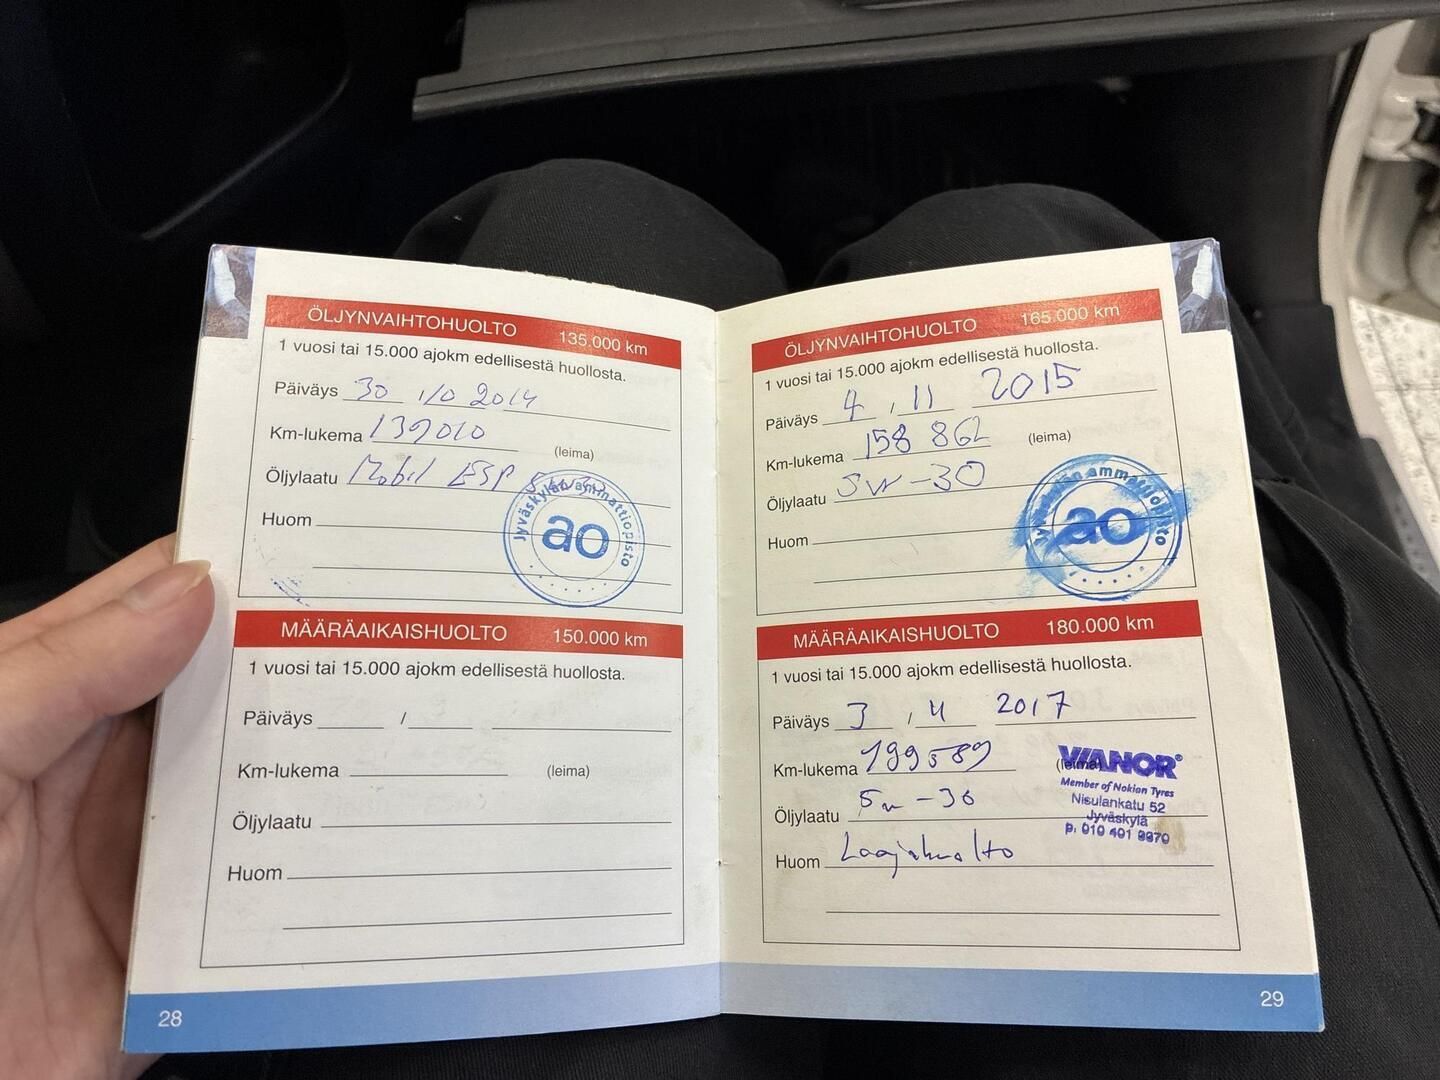 ÖLJYNVAIHTOHUOLTO 135.000 km
1 vuosi tai 15.000 ajokm edellisestä huollosta.
Päiväys 30 / 10 2014
Km-lukema 139010
(leima)
Öljylaatu Mobil ESP 5w30
Jyväskylän ammattiopisto
ao
Huom
MÄÄRÄAIKAISHUOLTO 150.000 km
1 vuosi tai 15.000 ajokm edellisestä huollosta.
Päiväys /
Km-lukema (leima)
Öljylaatu
Huom
28
ÖLJYNVAIHTOHUOLTO 165.000 km
1 vuosi tai 15.000 ajokm edellisestä huollosta.
Päiväys 4 / 11 2015
Km-lukema 158 862
(leima)
Öljylaatu 5w-30
Jyväskylän ammattiopisto
ao
Huom
MÄÄRÄAIKAISHUOLTO 180.000 km
1 vuosi tai 15.000 ajokm edellisestä huollosta.
Päiväys 3 / 4 2017
Km-lukema 199589
(leima)
VIANOR®
Member of Nokian Tyres
Nisulankatu 52
Jyväskylä
p. 010 401
Öljylaatu 5w-30
Huom Laajahuolto
29